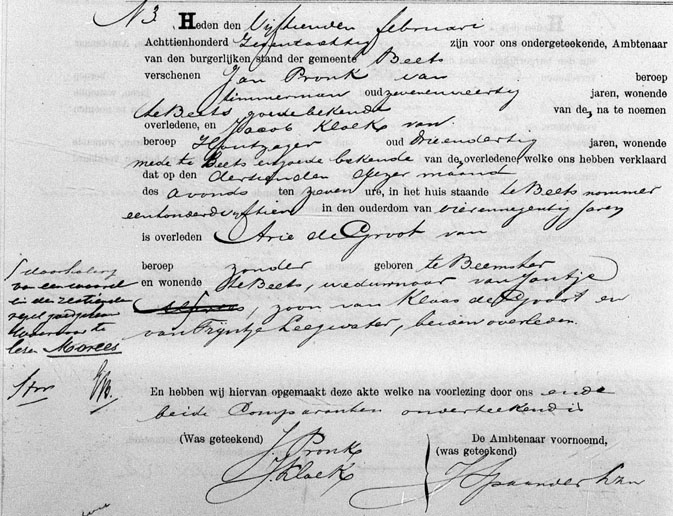 N 3. Heden den Vijftienden februari
Achttienhonderd Zevenentachtig zijn voor ons ondergeteekende, Ambtenaar
van den burgerlijken stand der gemeente Beets
verschenen Jan Pronk van beroep
timmerman oud zevenenveertig jaren, wonende
te Beets goede bekende van de, na te noemen
overledene, en Jacob Kloek van
beroep Houtzager oud drieendertig jaren, wonende
mede te Beets goede bekende van de, overledene, welke ons hebben verklaard
dat op den dertienden dezer maand
des avonds ten zeven ure, in het huis staande te Beets nommer
eenhonderdvijftien in den ouderdom van vierennegentig jaren
is overleden Arie de Groot van
beroep zonder geboren te Beemster
en wonende te Beets, weduwnaar van Jantje
, zoon van Klaas de Groot en
van Trijntje Leegwater, beiden overleden.
doorhaling
van een woord
in den zestienden
regel goedgekeurd
waarvoor te
lezen Morees
En hebben wij hiervan opgemaakt deze akte welke na voorlezing door ons en de
beide Comparanten onderteekend is
(Was geteekend) De Ambtenaar voornoemd,
(was geteekend)
J. Pronk
J. Kloek